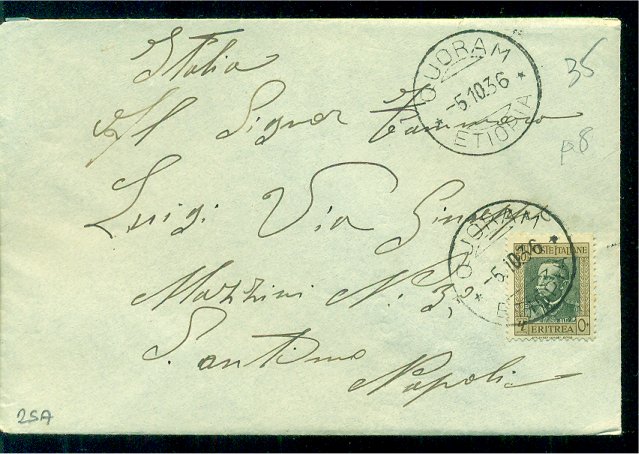 QUORAM
-5.10.36
ETIOPIA
35
p8
Italia
Al Signor Tammaro
Luigi Via Giuseppe
Mazzini N: 3
Santimo
Napoli
QUORAM
-5.10.36
POSTE ITALIANE
ERITREA
25A